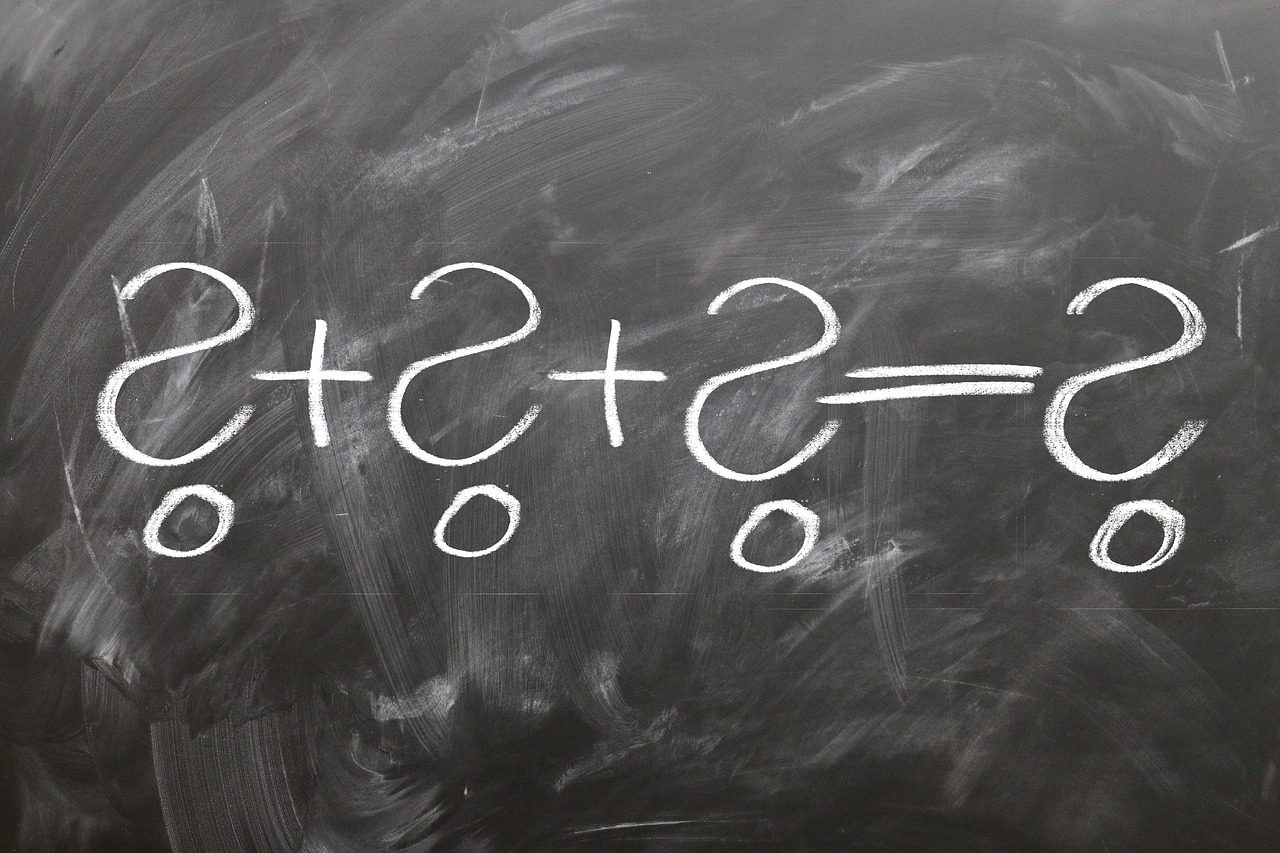 ? + ? + ? = ?